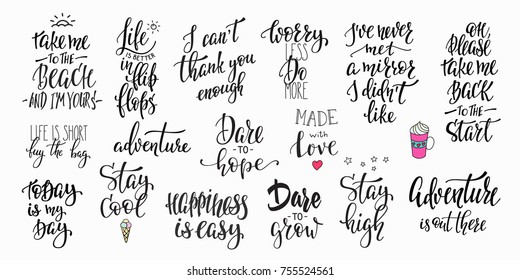 take me
TO THE
BEACH
AND I'M YOURS
Life
IS BETTER
in flip
flops
I can't
thank you
enough
Worry
LESS
Do
MORE
I've never
met
a mirror
I didn't
like
OH,
please
take me
BACK
TO THE
Start
LIFE IS SHORT
buy the bag
adventure
Dare
TO
hope
MADE
with
Love
TODAY
is my
Day
Stay
Cool
Happiness
is easy
Dare
TO
grow
Stay
high
Adventure
is out there
shutterstock
IMAGE ID: 755524561
www.shutterstock.com